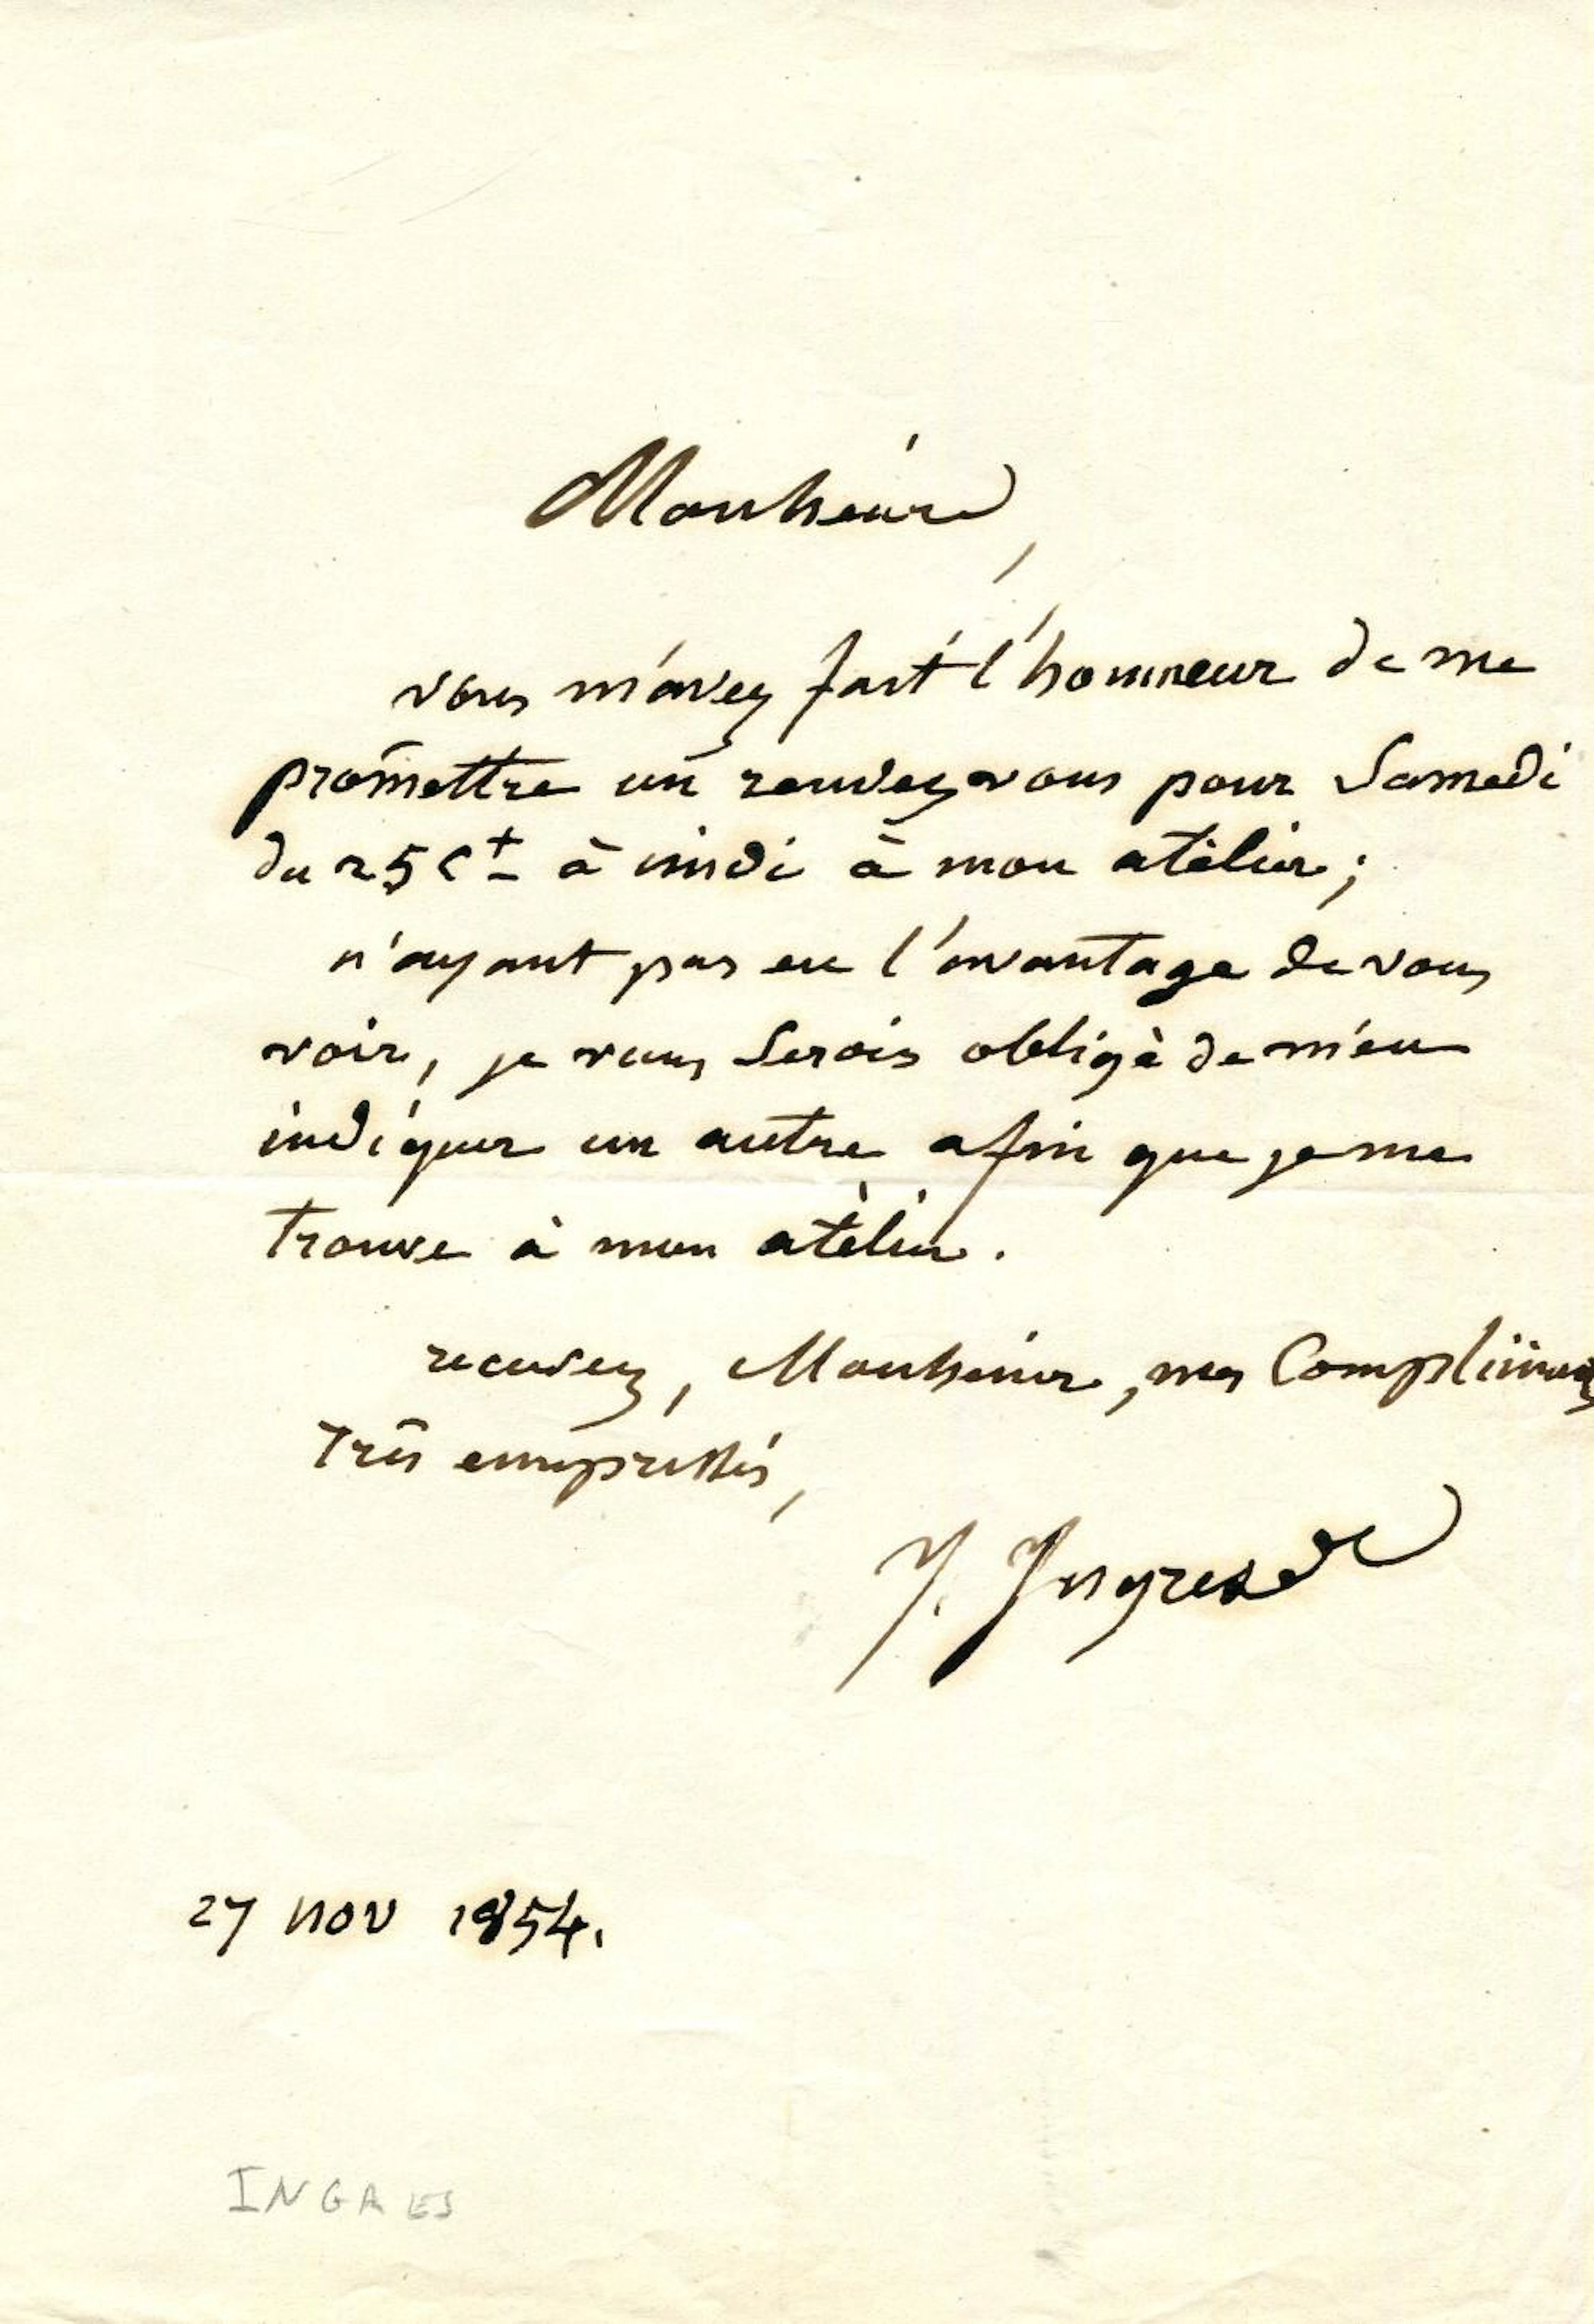 Monsieur,
vous m'avez fait l'honneur de me
promettre un rendez vous pour Samedi
du 25 Ct à midi à mon atèlier;
n'ayant pas eu l'avantage de vous
voir, je vous serois obligè de m'en
indiquer un autre afin que je me
trouve à mon atèlier.
recevez, Monsieur, mes Complimens
très empressés,
J. Ingres
27 nov 1854.
INGRES